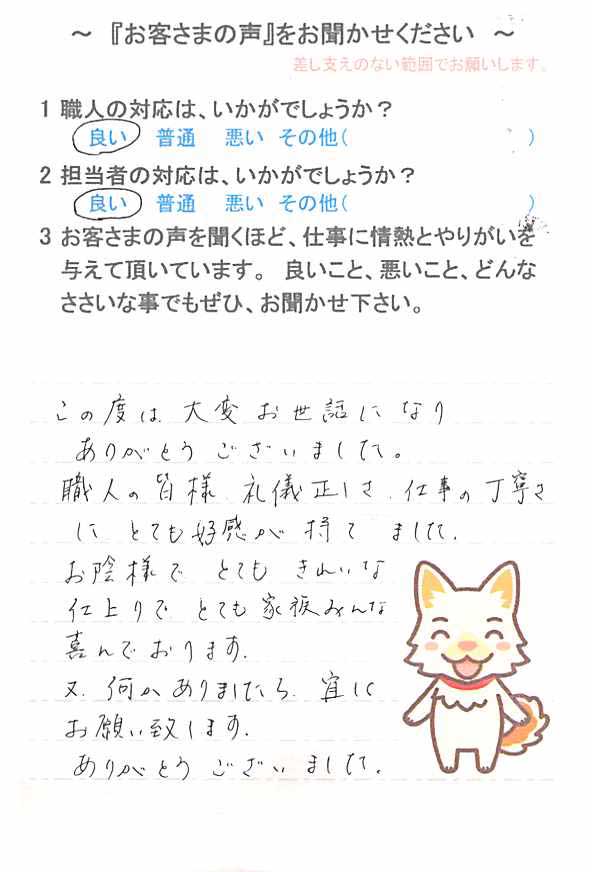 ～ 『お客さまの声』をお聞かせください ～
差し支えのない範囲でお願いします。
1 職人の対応は、いかがでしょうか？
良い 普通 悪い その他( )
2 担当者の対応は、いかがでしょうか？
良い 普通 悪い その他( )
3 お客さまの声を聞くほど、仕事に情熱とやりがいを
与えて頂いています。 良いこと、悪いこと、どんな
ささいな事でもぜひ、お聞かせ下さい。
この度は 大変 お世話に なり
ありがとう ございました。
職人の 皆様 礼儀正しさ、仕事の 丁寧さ
に とても 好感が 持て ました。
お陰様で とても きれいな
仕上りで とても 家族みんな
喜んで おります。
又、何か ありましたら、宜しく
お願い致します。
ありがとう ございました。